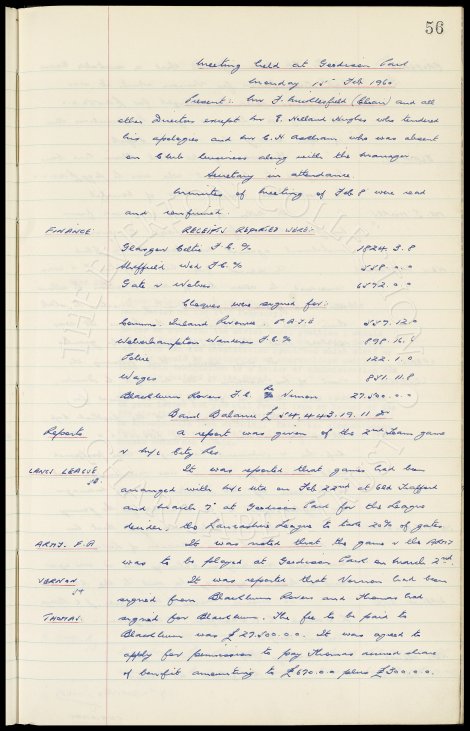 56
Meeting held at Goodison Park
Monday 15th Feb 1960
Present:- Mr F. Micklesfield (Chair) and all
other Directors except Mr E. Holland Hughes who tendered
his apologies and Mr C. H. Askham who was absent
on Club business along with the Manager
Secretary in attendance.
Minutes of Meeting of Feb 8 were read
and confirmed.
FINANCE RECEIPTS REPORTED WERE:-
Glasgow Celtic F.C. % 1824. 3. 8
Sheffield Wed F.C. % 558. 0. 0
Gate v Wolves 6572. 0. 0
Cheques were signed for:
Comms. Inland Revenue. P.A.Y.E 557. 12. 0
Wolverhampton Wanderers F.C. % 898. 16. 4
Police 122. 1. 0
Wages 851. 11. 8
Blackburn Rovers F.C. Re Vernon 27.500. 0. 0
Bank Balance £ 54. 443. 19. 11
Reports. A report was given of the 2nd Team game
v M/c City Res
LANCS LEAGUE It was reported that games had been
arranged with M/c Utd on Feb 22nd at Old Trafford
and March 7th at Goodison Park for the League
decider, the Lancashire League to take 20% of gates
ARMY. F.A It was noted that the game v the ARMY
was to be played at Goodison Park on March 2nd.
VERNON It was reported that Vernon had been
signed from Blackburn Rovers and Thomas had
THOMAS. signed for Blackburn. The fee to be paid to
Blackburn was £27.500. 0. 0. It was agreed to
apply for permission to pay Thomas accrued share
of benefit amounting to £670. 0. 0 plus £300. 0. 0.